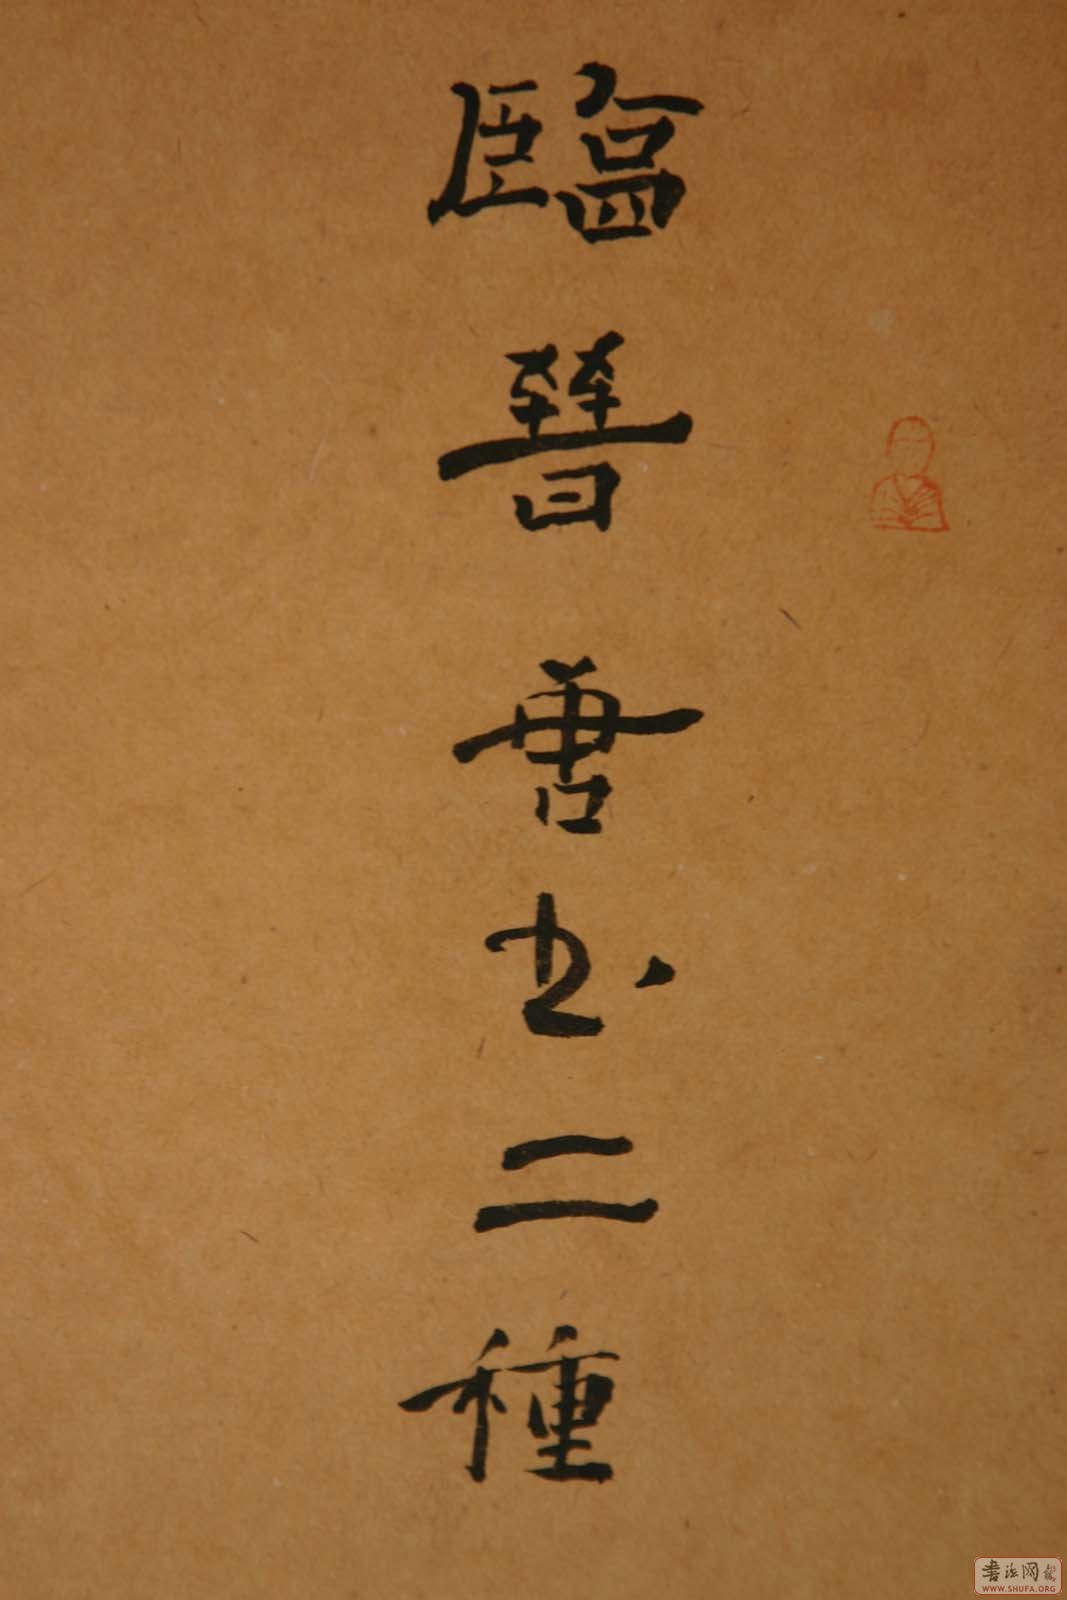 臨晉唐书二種
书法网
WWW.SHUFA.ORG